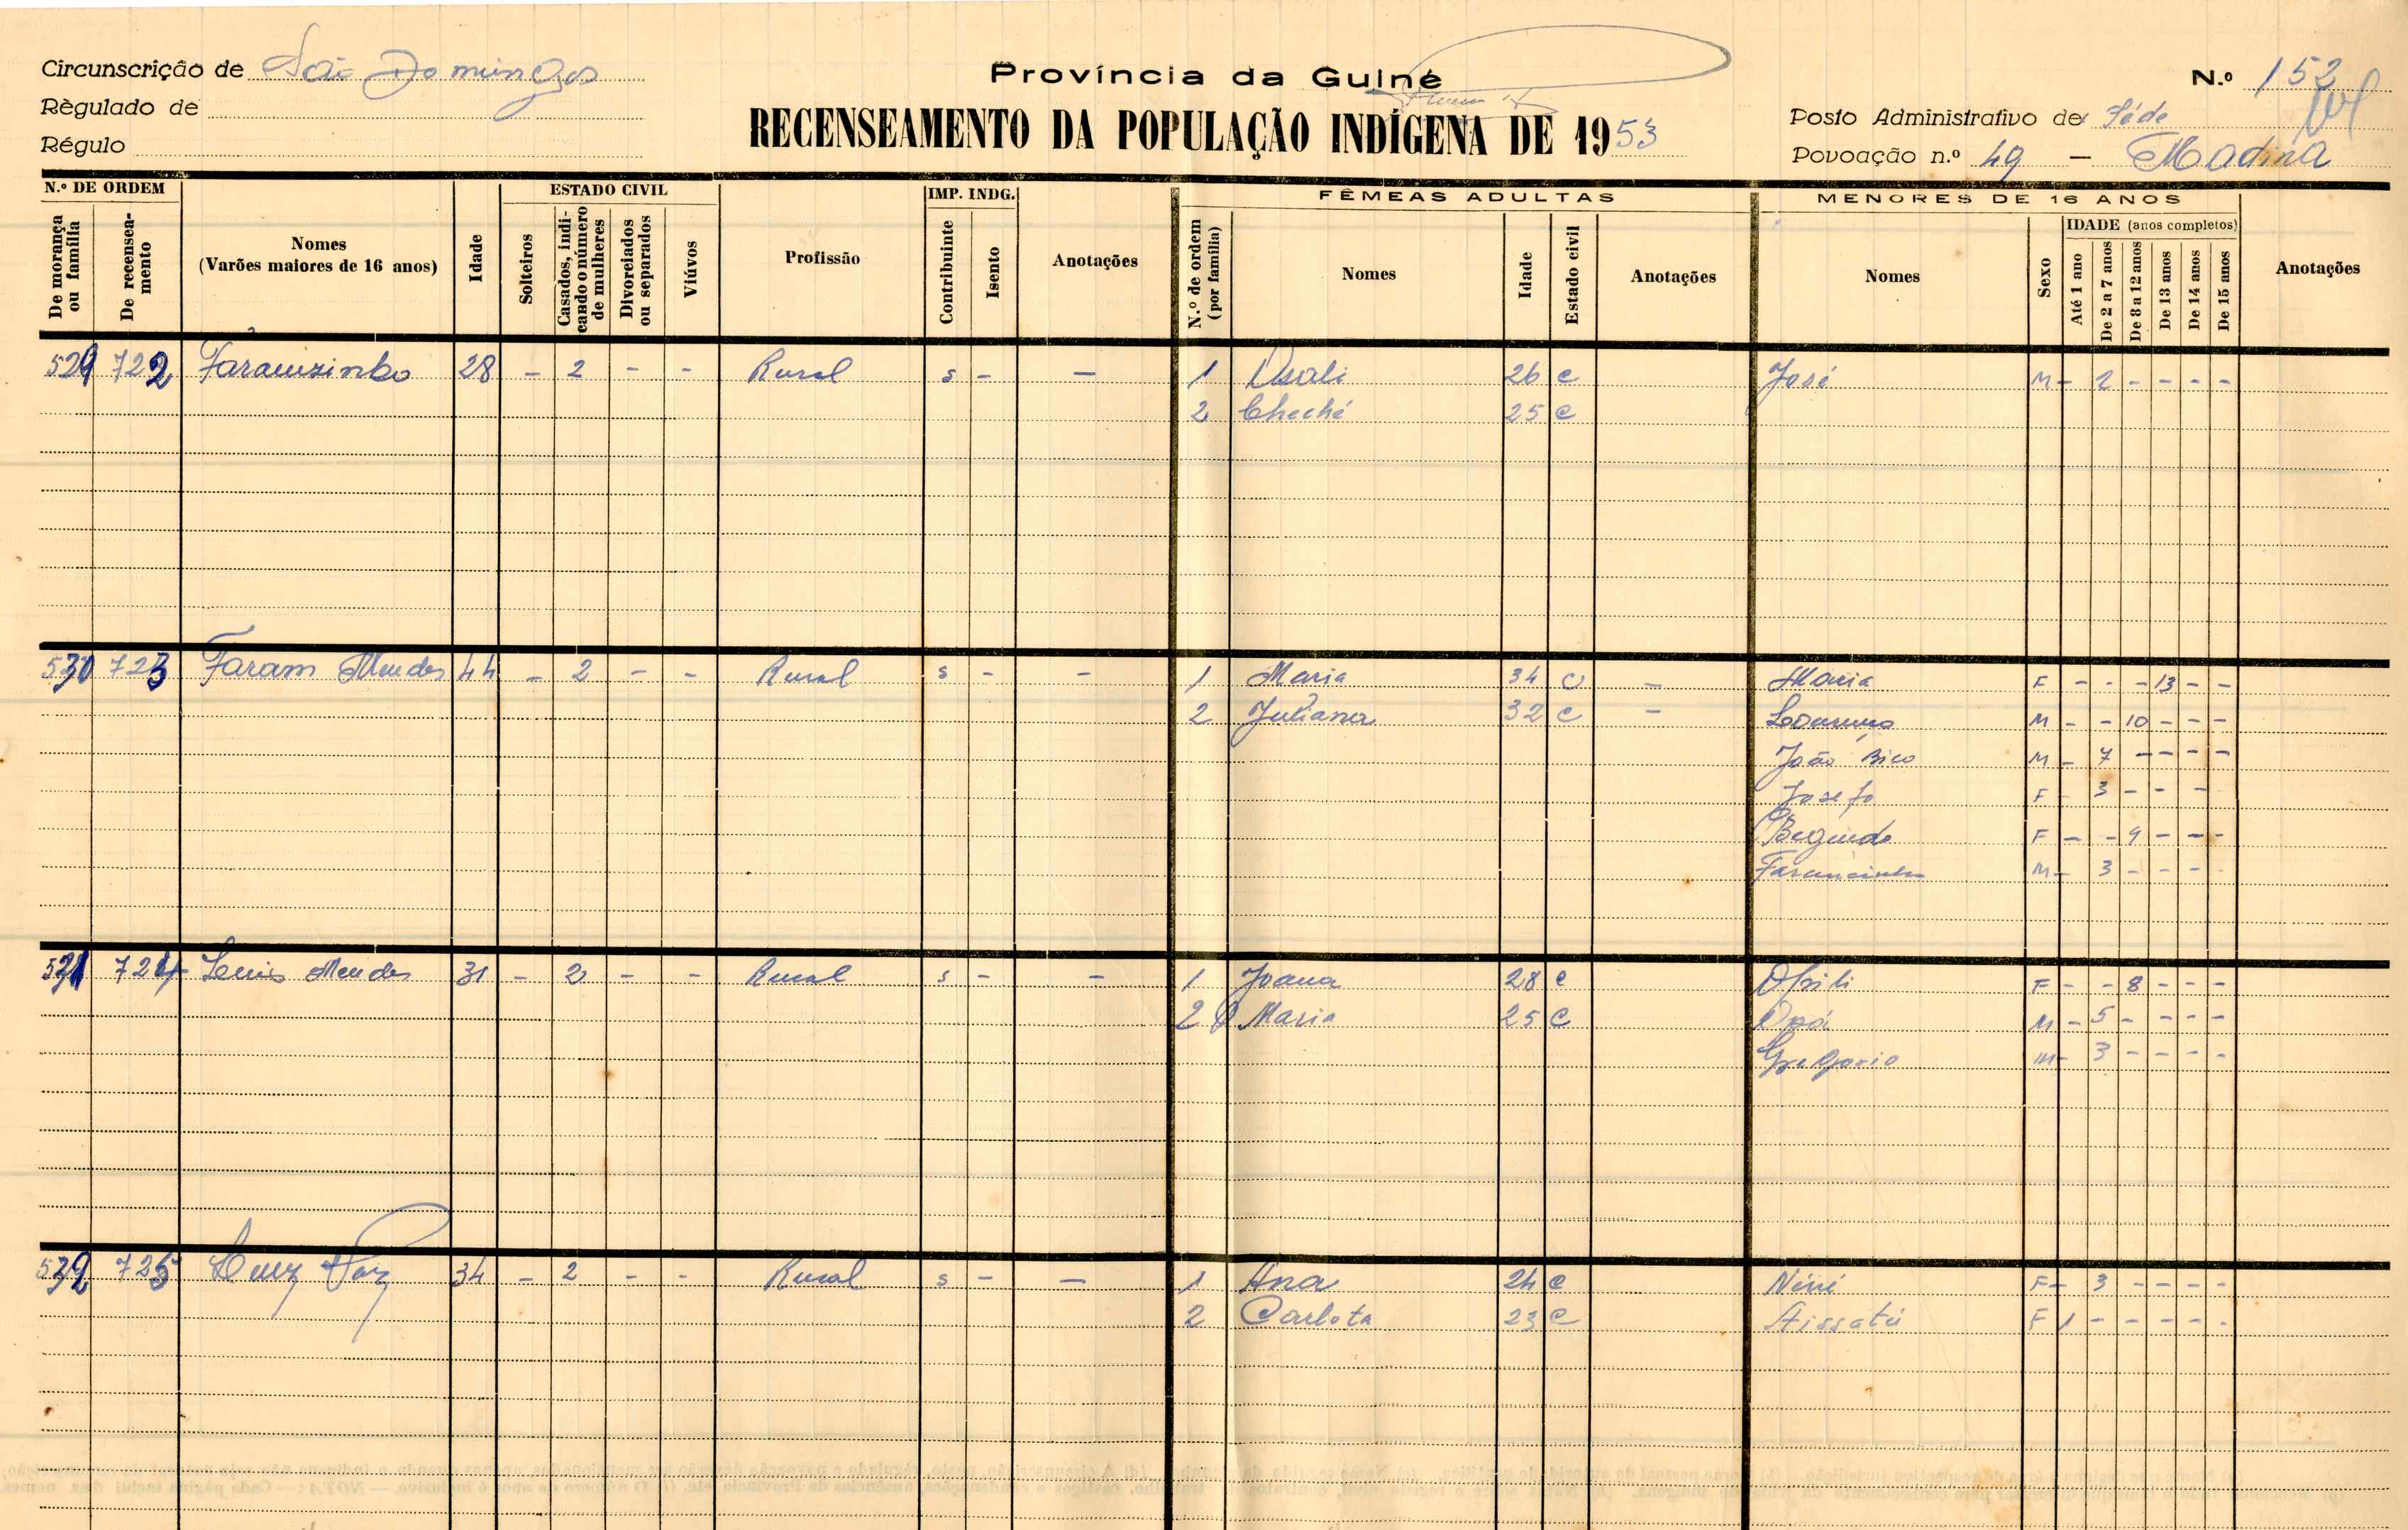 Circunscrição de São Domingos
Província da Guiné
N.º 152
Règulado de
RECENSEAMENTO DA POPULAÇÃO INDÍGENA DE 1953
Posto Administrativo de Séde
Régulo
Povoação n.º 49 — Madina
N.º DE ORDEM
De morança ou família
De recensea-mento
Nomes
(Varões maiores de 16 anos)
Idade
ESTADO CIVIL
Solteiros
Casados, indi-cando o número de mulheres
Divorciados ou separados
Viúvos
Profissão
IMP. INDG.
Contribuinte
Isento
Anotações
FÊMEAS ADULTAS
N.º de ordem (por família)
Nomes
Idade
Estado civil
Anotações
MENORES DE 16 ANOS
Nomes
Sexo
IDADE (anos completos)
Até 1 ano
De 2 a 7 anos
De 8 a 12 anos
De 13 anos
De 14 anos
De 15 anos
Anotações
529 722 28 - 2 - - Rural s - — 1 26 c José M - 2 - - - -
2 Cheché 25 c
530 723 Faram Mendes 44 - 2 - - Rural s - - 1 Maria 34 c - Maria F - - - 13 - -
2 Juliana 32 c - M - - 10 - - -
João Bico M - 7 - - - -
F - 3 - - -
F - - 9 - - -
M - 3 - - -
531 724 Luis Mendes 31 - 2 - - Rural s - - 1 Joana 28 c F - - 8 - - -
2 Maria 25 c M - 5 - - - -
Gregorio M - 3 - - - -
532 725 34 - 2 - - Rural s - — 1 Ana 24 c Néné F - 3 - - - -
2 Carlota 23 c Aissatú F 1 - - - - -